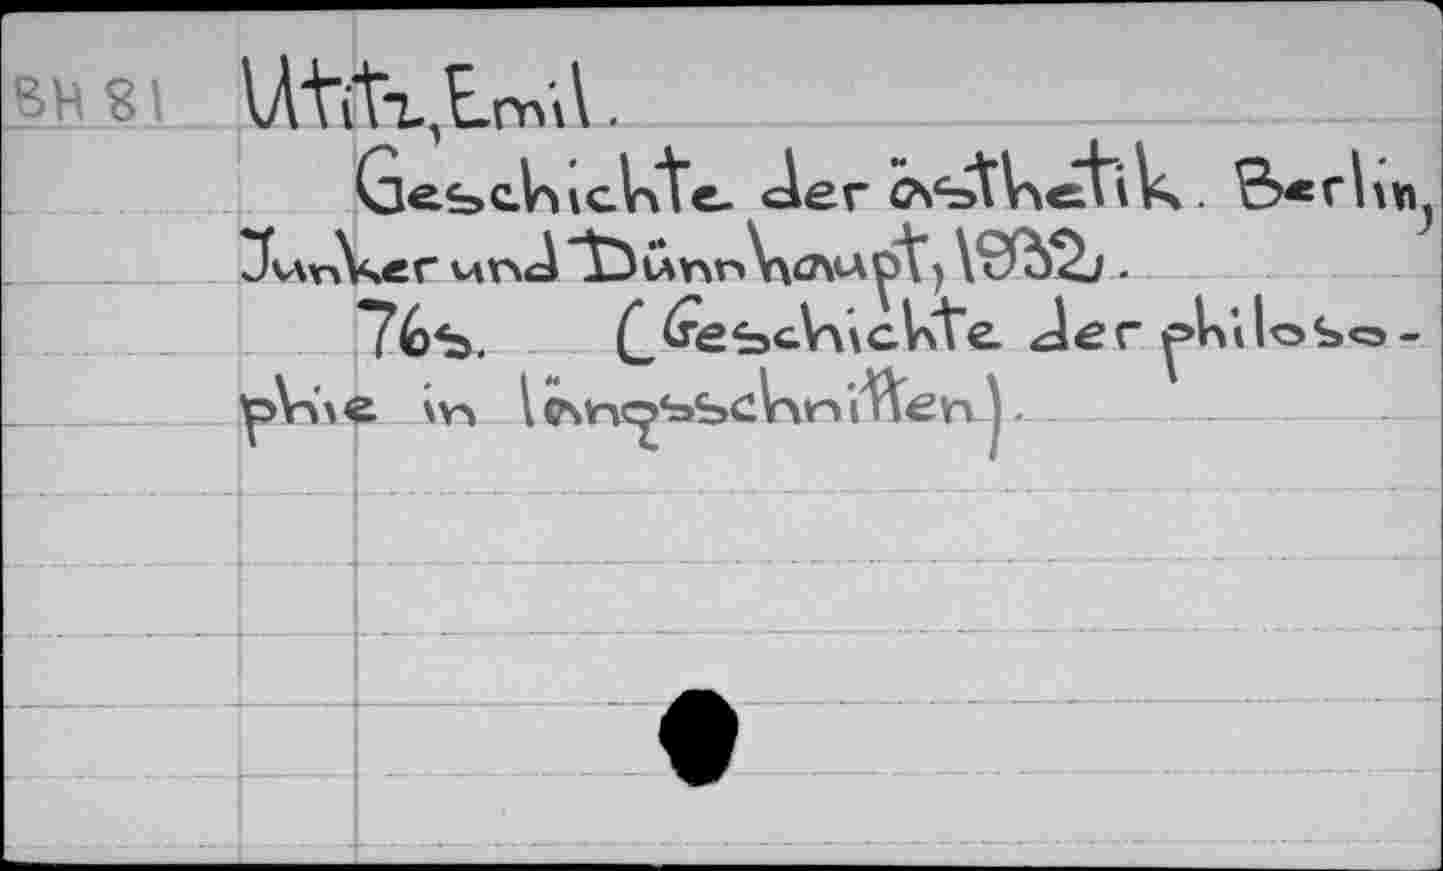 BH 81 Utitz, Emil.
Geschichte der ästhetik. Berlin,
Junker und Dünnhaupt, 1932.
76s. (Geschichte der philoso-
phie in längsschnitten).